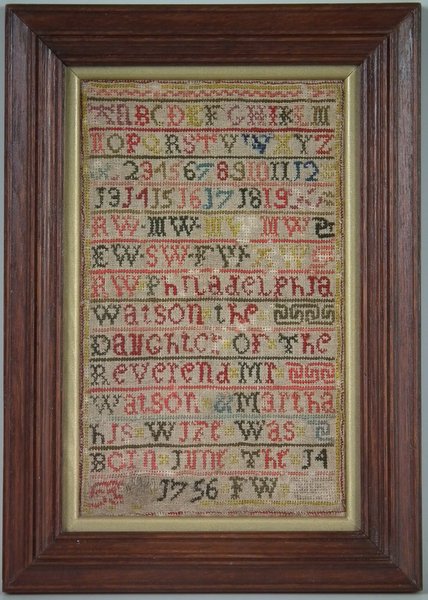 ABCDEFGHIKLM
OPQRSTVWXYZ
2 3 4 5 6 7 8 9 10 11 12
13 14 15 16 17 18 19
RW·MW· MW
EW·SW·FW·
Philadelphia
Watson the
Daughter Of The
Reverend Mr
Watson & Martha
his Wife Was
Born June The 14
1756 FW